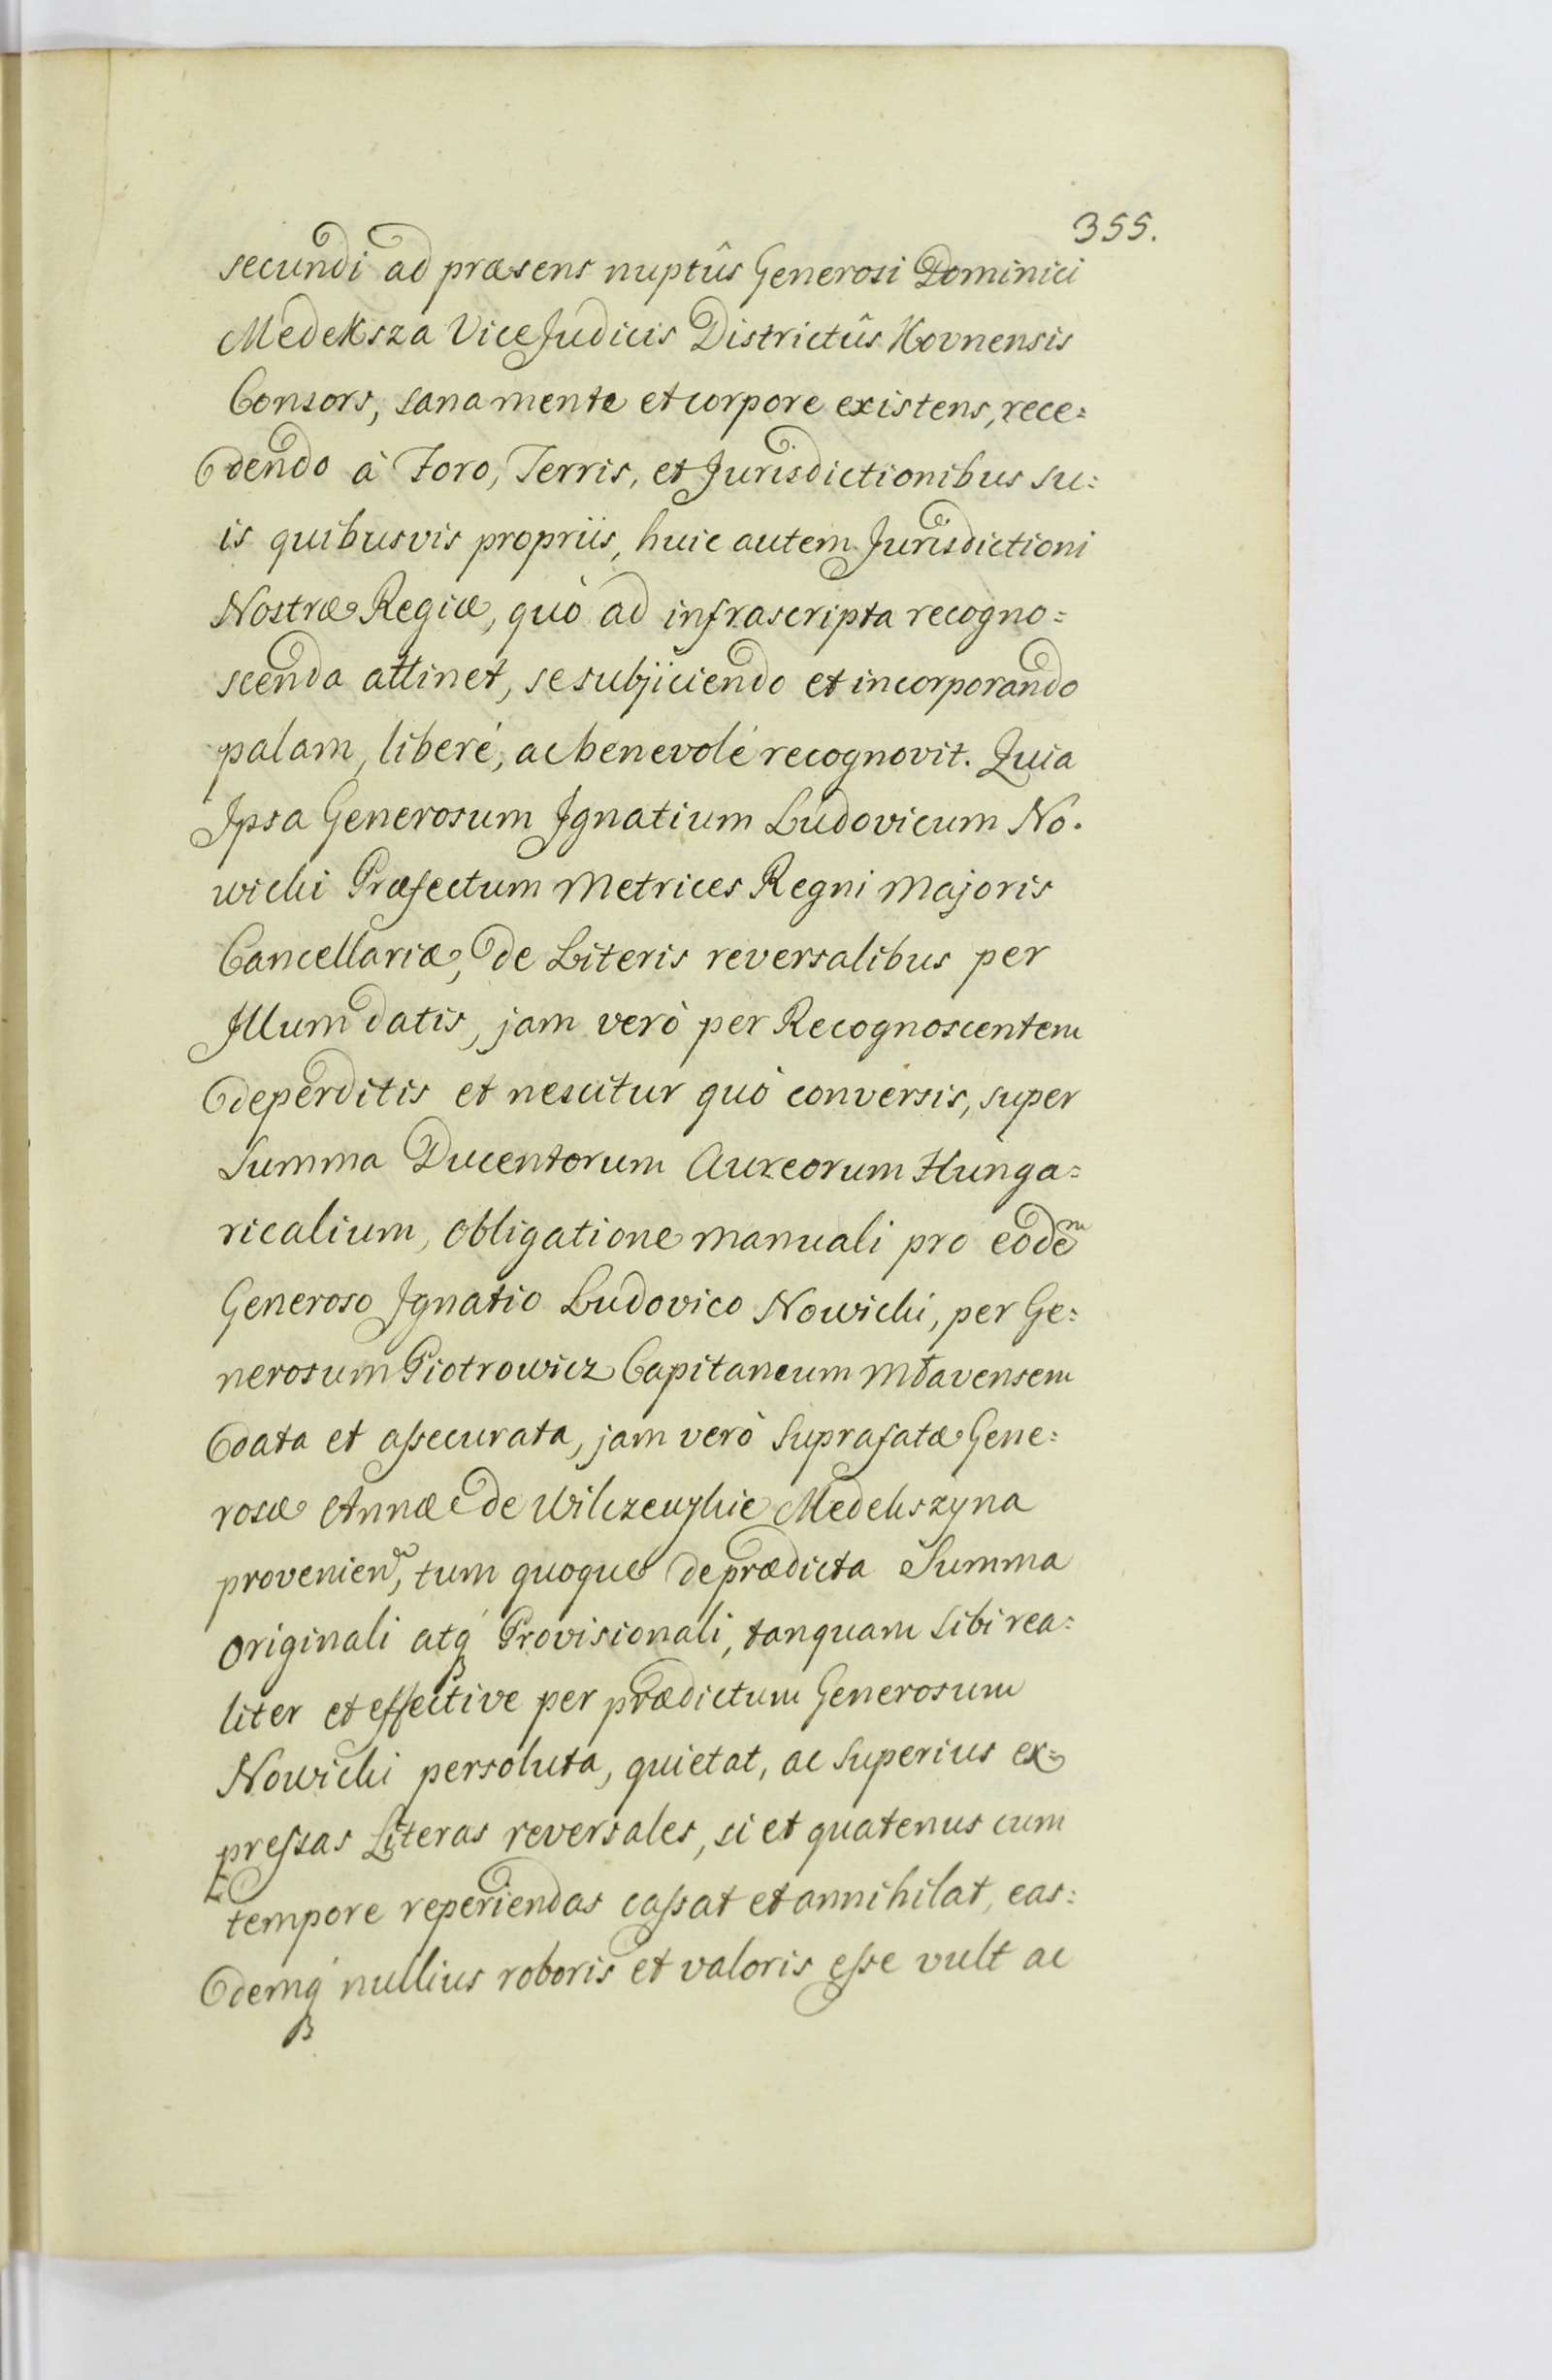 355.
secundi ad præsens nuptûs Generosi Dominici
Medeksza ViceJudicis Districtûs Kovnensis
Consors, sana mente et corpore existens, rece=
dendo à Foro, Terris, et Jurisdictionibus su=
is quibusvis propriis, huic autem Jurisdictioni
Nostræ Regiæ, quò ad infrascripta recogno=
scenda attinet, se subjiciendo et incorporando
palam, liberé, ac benevolé recognovit. Quia
Ipsa Generosum Ignatium Ludovicum No.
wicki Præfectum Metrices Regni Majoris
Cancellariæ, de Literis reversalibus per
Illum datis, jam verò per Recognoscentem
deperditis et nescitur quò conversis, super
Summa Ducentorum Aureorum Hunga=
ricalium, obligatione manuali pro eodem
Generoso Ignatio Ludovico Nowicki, per Ge=
nerosum Piotrowicz Capitaneum Mdavensem
data et assecurata, jam verò Suprafatæ Gene=
rosæ Annæ de Wilczewskie Medekszyna
provenien, tum quoque de prædicta Summa
Originali atq Provisionali, tanquam sibi rea=
liter et effective per prædictum Generosum
Nowicki persoluta, quietat, ac superius ex=
pressas Literas reversales, si et quatenus cum
tempore reperiendas cassat et annihilat, eas=
demq nullius roboris et valoris esse vult ac